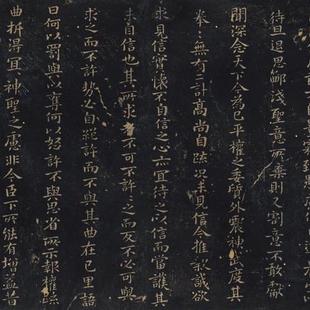 待旦退思鄙淺聖意所棄則又割意不敢獻
聞深念天下今為已平權之委質外震神武度其
拳〻無有二計高尚自疏況未見信今推款誠欲
求見信實懷不自信之心亦宜待之以信而當護其
未自信也其所求者不可不許許之而反不必可與
求之而不許勢必自絕許而不與其曲在己里語
曰何以罰與以奪何以怒許不與思省所示報權疏
曲折得宜神聖之慮非今臣下所能有增益昔